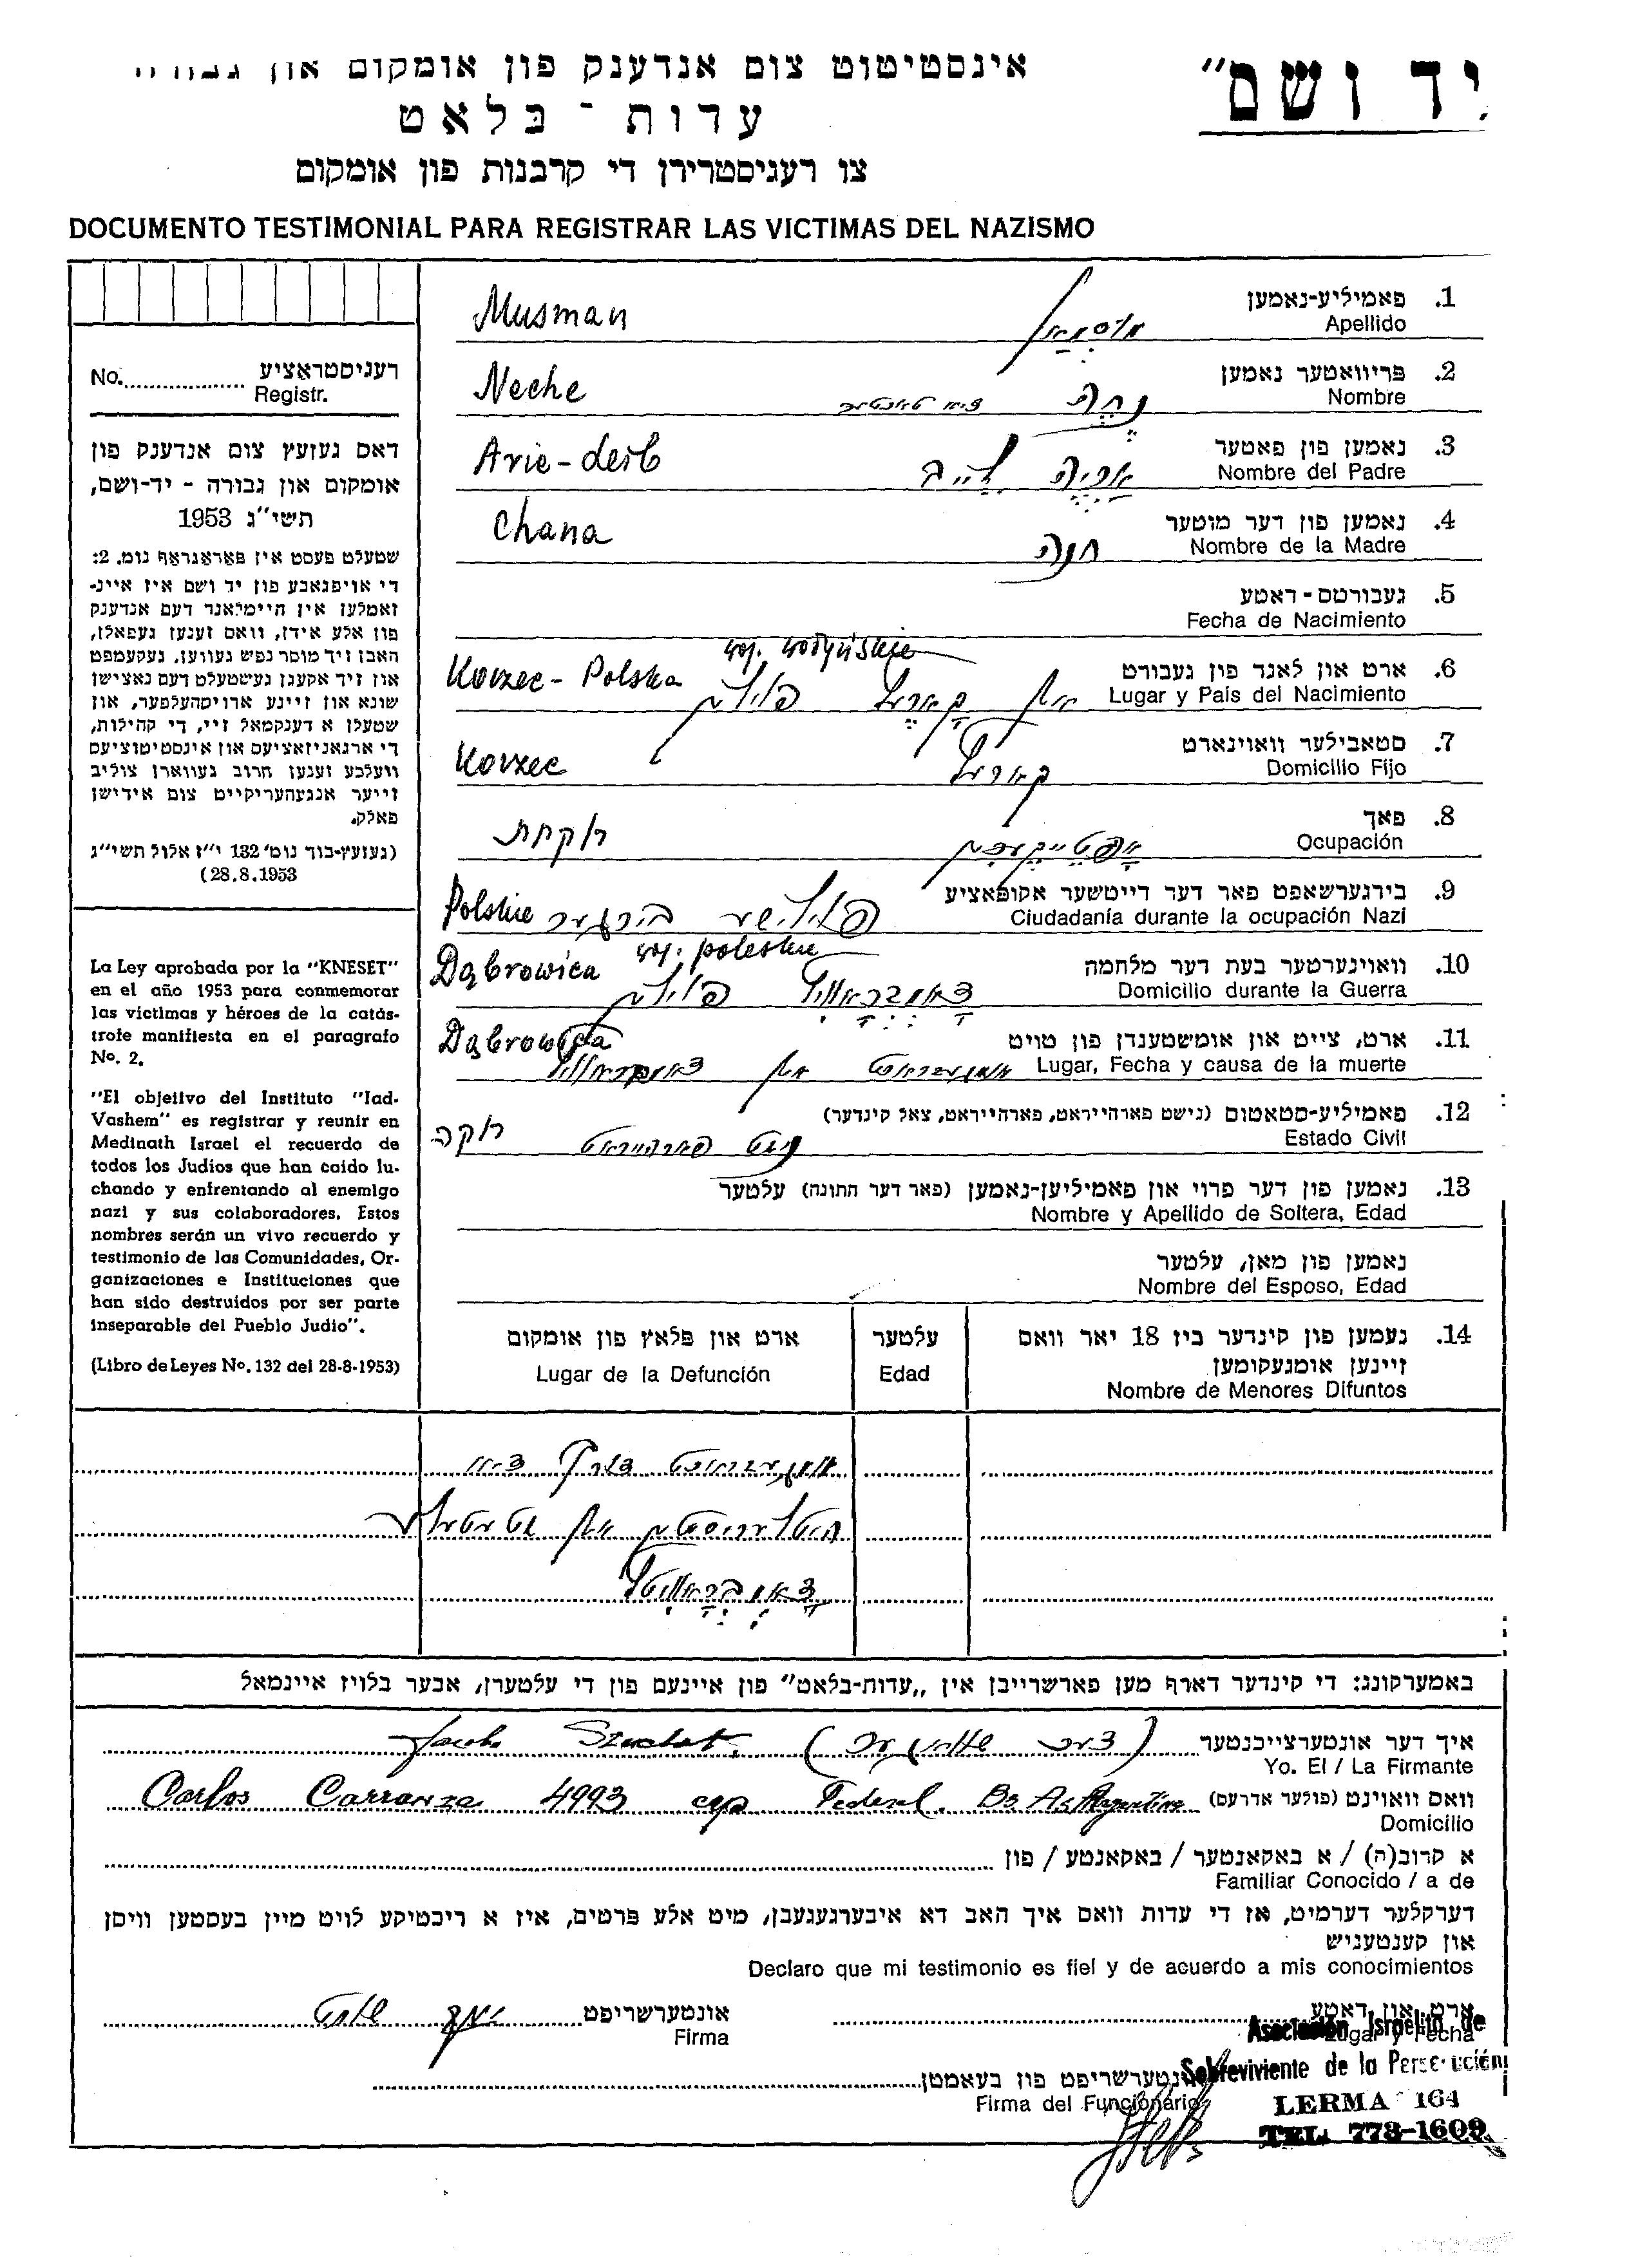 יד ושם"
אינסטיטוט צום אנדענק פון אומקום און
עדות - בלאט
צו רעגיסטרירן די קרבנות פון אומקום
DOCUMENTO TESTIMONIAL PARA REGISTRAR LAS VICTIMAS DEL NAZISMO
No. ........ רעגיסטראציע
Registr.
דאס געזעץ צום אנדענק פון
אומקום און גבורה - יד-ושם,
תשי"ג 1953
שטעלט פעסט אין פאראגראף נומ. 2:
די אויפגאבע פון יד ושם איז איינ-
זאמלען אין היימלאנד דעם אנדענק
פון אלע אידן, וואס זענען געפאלן,
האבן זיך מוסר נפש געווען, געקעמפט
און זיך אקעגן געשטעלט דעם נאצישן
שונא און זיינע ארויסהעלפער, און
שטעלן א דענקמאל זיי, די קהילות,
די ארגאניזאציעס און אינסטיטוציעס
וועלכע זענען חרוב געווארן צוליב
זייער אנגעהעריקייט צום אידישן
פאלק.
(געזעץ-בוך נומ' 132 י"ז אלול תשי"ג
28.8.1953)
La Ley aprobada por la "KNESET"
en el año 1953 para conmemorar
las víctimas y héroes de la catás-
trofe manifiesta en el paragrafo
No. 2.
"El objetivo del Instituto "Iad-
Vashem" es registrar y reunir en
Medinath Israel el recuerdo de
todos los Judios que han caido lu-
chando y enfrentando al enemigo
nazi y sus colaboradores. Estos
nombres serán un vivo recuerdo y
testimonio de las Comunidades, Or-
ganizaciones e Instituciones que
han sido destruidos por ser parte
inseparable del Pueblo Judio".
(Libro de Leyes No. 132 del 28-8-1953)
1. פאמיליע-נאמען
Apellido
Musman מוסמאן
2. פריוואטער נאמען
Nombre
Neche נחה
3. נאמען פון פאטער
Nombre del Padre
Arie-Leib אריה לייב
4. נאמען פון דער מוטער
Nombre de la Madre
Chana חנה
5. געבורטס-דאטע
Fecha de Nacimiento
6. ארט און לאנד פון געבורט
Lugar y País del Nacimiento
woj. wołyńskie
Korzec - Polska אין קארעץ פוילן
7. סטאבילער וואוינארט
Domicilio Fijo
Korzec קארעץ
8. פאך
Ocupación
רוקחת אפטייקערין
9. בירגערשאפט פאר דער דייטשער אקופאציע
Ciudadanía durante la ocupación Nazi
Polskie פוילישע בירגער
10. וואוינערטער בעת דער מלחמה
Domicilio durante la Guerra
woj. poleskie
Dąbrowica פוילן
11. ארט, צייט און אומשטענדן פון טויט
Lugar, Fecha y causa de la muerte
Dąbrowica אומגעבראכט אין
12. פאמיליע-סטאטוס (נישט פארהייראט, פארהייראט, צאל קינדער)
Estado Civil
רוקה נישט פארהייראט
13. נאמען פון דער פרוי און פאמיליען-נאמען (פאר דער חתונה) עלטער
Nombre y Apellido de Soltera, Edad
נאמען פון מאן, עלטער
Nombre del Esposo, Edad
14. נעמען פון קינדער ביז 18 יאר וואס
זיינען אומגעקומען
Nombre de Menores Difuntos
עלטער
Edad
ארט און פלאץ פון אומקום
Lugar de la Defunción
אומגעבראכט דורך די
היטלעריסטן אין
באמערקונג: די קינדער דארף מען פארשרייבן אין „עדות-בלאט" פון איינעם פון די עלטערן, אבער בלויז איינמאל
איך דער אונטערצייכנטער
Yo. El / La Firmante
Jacobo
וואס וואוינט (פולער אדרעס) Carlos Carranza 4993 cap Federal. Bs As Argentina
Domicilio
א קרוב(ה) / א באקאנטער / באקאנטע / פון
Familiar Conocido / a de
דערקלער דערמיט, אז די עדות וואס איך האב דא איבערגעגעבן, מיט אלע פרטים, איז א ריכטיקע לויט מיין בעסטען וויסן
און קענטעניש
Declaro que mi testimonio es fiel y de acuerdo a mis conocimientos
ארט און דאטע
Lugar y Fecha
אונטערשריפט
Firma
אונטערשריפט פון בעאמטן
Firma del Funcionario
Asociación Israelita de
Sobreviviente de la Persecución
LERMA 164
TEL: 773-1609